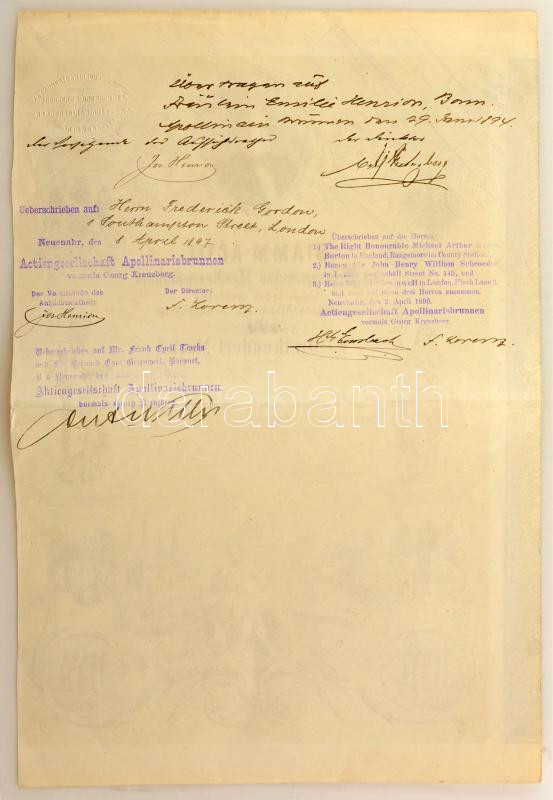 übertragen auf
Fräulein Emilie Henrion, Bonn.
Apollinarisbrunnen den 29. Januar 1894.
der Vorsitzende des Aufsichtsrathes
der Direktor
Jos Henrion
Ueberschrieben auf: Herrn Frederick Gordon,
Southampson Street, London
Neuenahr, den 8 April 1897
Actiengesellschaft Apollinarisbrunnen
vormals Georg Kreuzberg.
Der Vorsitzende des
Aufsichtsrathes:
Der Director:
Jos Henrion
F. Lorenz
Überschrieben auf die Herren:
1.) The Right Honourable Michael Arthur
Burton in England, Rangemore im County Stafford
2.) Baron Sir John Henry William Schroeder
in London, Leadenhall Street No. 145, und
3.) in London, Finch Lane
und zwar auf diese drei Herren zusammen.
Neuenahr, den 2. April 1898.
Actiengesellschaft Apollinarisbrunnen
vormals Georg Kreuzberg.
F. Lorenz
Ueberschrieben auf Mr. Frank Cyril Tiarks
und Sir Bernard Eyre Greenwell, Baronet,
Aktiengesellschaft Apollinarisbrunnen.
vormals Georg Kreuzberg
darabanth